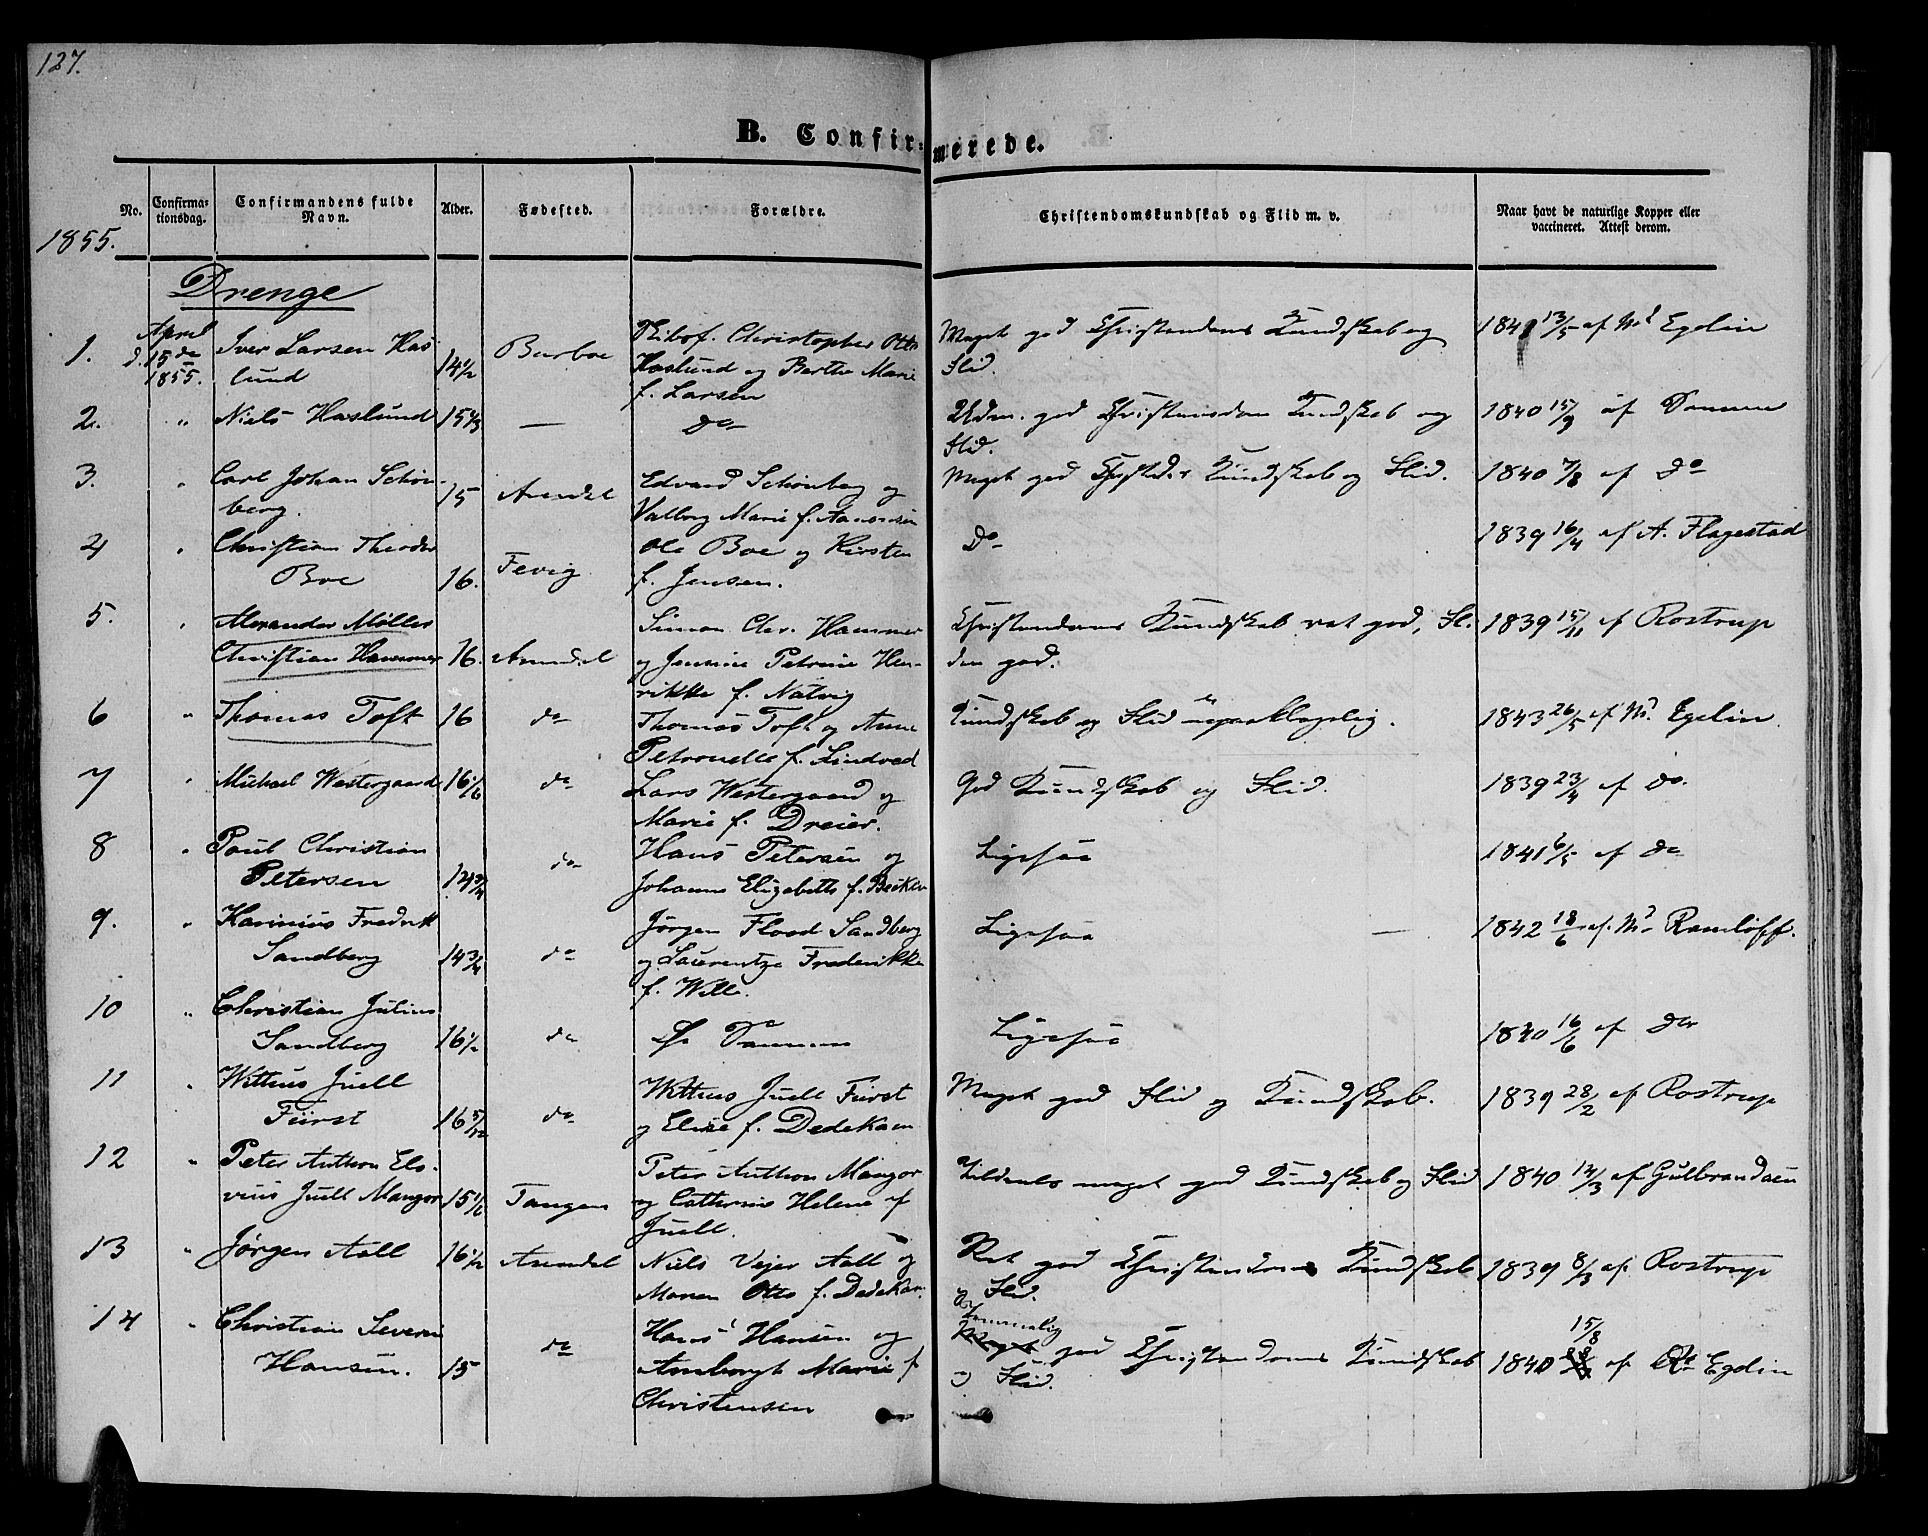 127.
B. Confir-
merede.
No.
Confirma-
tionsdag.
Confirmandens fulde
Navn.
Alder.
Fødested.
Forældre.
Christendomskundskab og Flid m. v.
Naar havt de naturlige Kopper eller
vaccineret. Attest derom.
1855.
Drenge
1.
April
d. 15de
1855.
Iver Larsen Has
lund
14 1/2
Barboe
Christopher Otto
Haslund og Berthe Marie
f. Larsen
Meget god Christendoms Kundskab og
Flid.
1841 13/5 af Md Egelin
2.
"
Niels Haslund
15
—
do
Udm. god Christendom Kundskab og
Flid.
1840 15/9 af Samme
3.
"
Carl Johan Schön-
berg.
15
Arendal
Edvard Schönberg og
Valborg Marie f. Aanonsen
Meget god Kundskab og Flid.
1840 7/8 af do
4
"
Christian Theodor
Boe
16.
Fevig
Ole Boe og Kirsten
f. Jensen.
do
1839 16/4 af A. Flagestad
5.
"
Alexander Møller
Christian Hammer
16.
Arendal
Simon Chr. Hammer
og Jensine Petrine Hen-
rikke f. Natvig
Christendoms Kundskab ret god, Fli-
den god.
1839 15/11 af Rostrup
6
"
Thomas Toft
16
do
Thomas Toft og Anne
Petronelle f. Lindved
Kundskab og Flid upaaklagelig.
1843 26/5 af Md Egelin
7
"
Michael Westergaard
16 1/6
do
Lars Westergaard og
Marie f. Dreier.
God Kundskab og Flid.
1839 23/4 af do.
8
"
Poul Christian
Petersen
14 3/4
do
Hans Petersen og
Johanne Elizabeth f.
Ligesaa
1841 6/5 af do
9.
"
Fredrik
Sandberg
14 3/4
do
Jørgen Flood Sandberg
og Laurentze Frederikke
f. Wille.
Ligesaa
—
1842 18/6 af Md Ramløff.
10
"
Christian Julius
Sandberg
16 1/2
do
Samme
Ligesaa
1840 16/6 af do
11
"
Wittus Juell
Fürst
16 5/12
do
Wittus Juell Fürst
og Elise f. Dedekam
Meget god Flid og Kundskab.
1839 28/2 af Rostrup
12
"
Peter Anthon Els-
vius Juell Mangor
15 1/6
Tangen
Peter Anthon Mangor
og Cathrine Helene f
Juell.
meget god Kundskab og Flid
1840 12/3 af Gulbrandsen
13
"
Jørgen Aall
16 1/2
Arendal
Niels Vejer Aall og
Maren Otto f. Dedekam
Ret god Christendoms Kundskab
og Flid.
1839 8/3 af Rostrup
14
"
Christian Severin
Hansen.
15
do
Hans Hansen og
Anneborgh Marie f
Christensen
temmelig
Meget god Christendoms Kundskab
og Flid.
15/8
1840 af Egelin